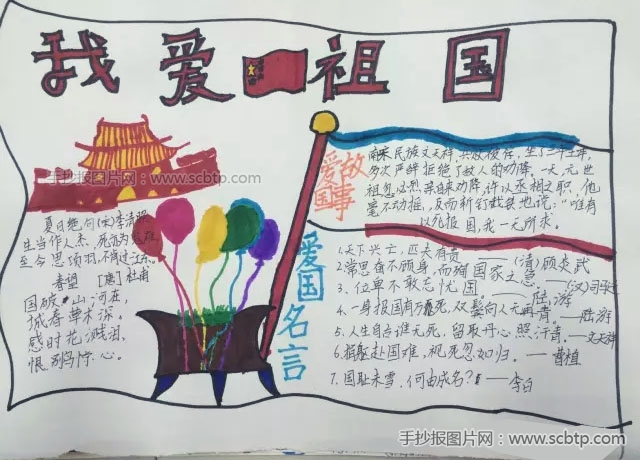 我爱祖国
手抄报图片网
www.scbtp.com
夏日绝句(宋)李清照
生当作人杰,死亦为鬼雄
至今思项羽,不肯过江东。
春望 [唐]杜甫
国破 山河在,
城春草木深。
感时花溅泪,
恨别鸟惊心。
爱国
故事
南宋民族文天祥,兵败被俘,坐了三年土牢,
多次严辞拒绝了敌人的劝降。一天,元世
祖忽必烈亲自来劝降,许以丞相之职,他
毫不动摇,反而斩钉截铁地说:“唯有
以死报国,我一无所求。
爱国名言
1.天下兴亡,匹夫有责——(清)顾炎武
2.常思奋不顾身,而殉国家之急——(汉)司
3.位卑不敢忘忧国——陆游
4.一身报国有万死,双鬓向人无再青。——陆游
5.人生自古谁无死,留取丹心照汗青。——文天祥
6.捐躯赴国难,视死忽如归。——曹植
7.国耻未雪,何由成名?——李白
手抄报图片网:www.scbtp.com